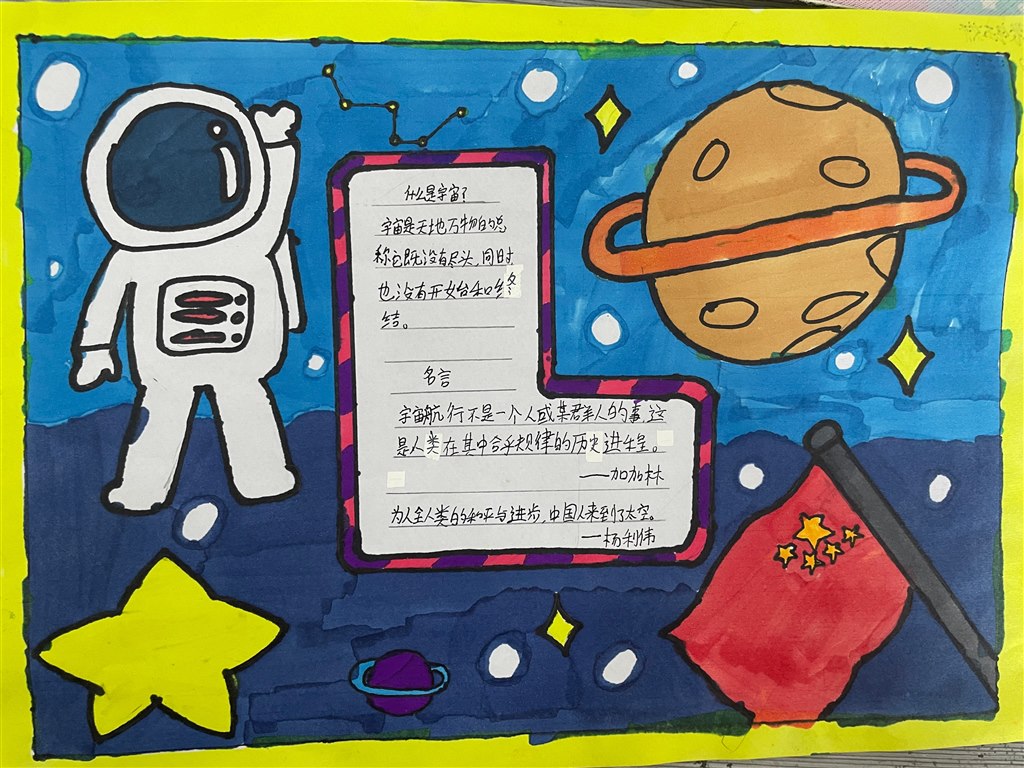 什么是宇宙?
宇宙是天地万物的总
称它既没有尽头,同时
也没有开始和终
结。
名言
宇宙航行不是一个人或某群人的事,这
是人类在其中合乎规律的历史进程。
——加加林
为人全人类的和平与进步,中国人来到了太空。
—杨利伟